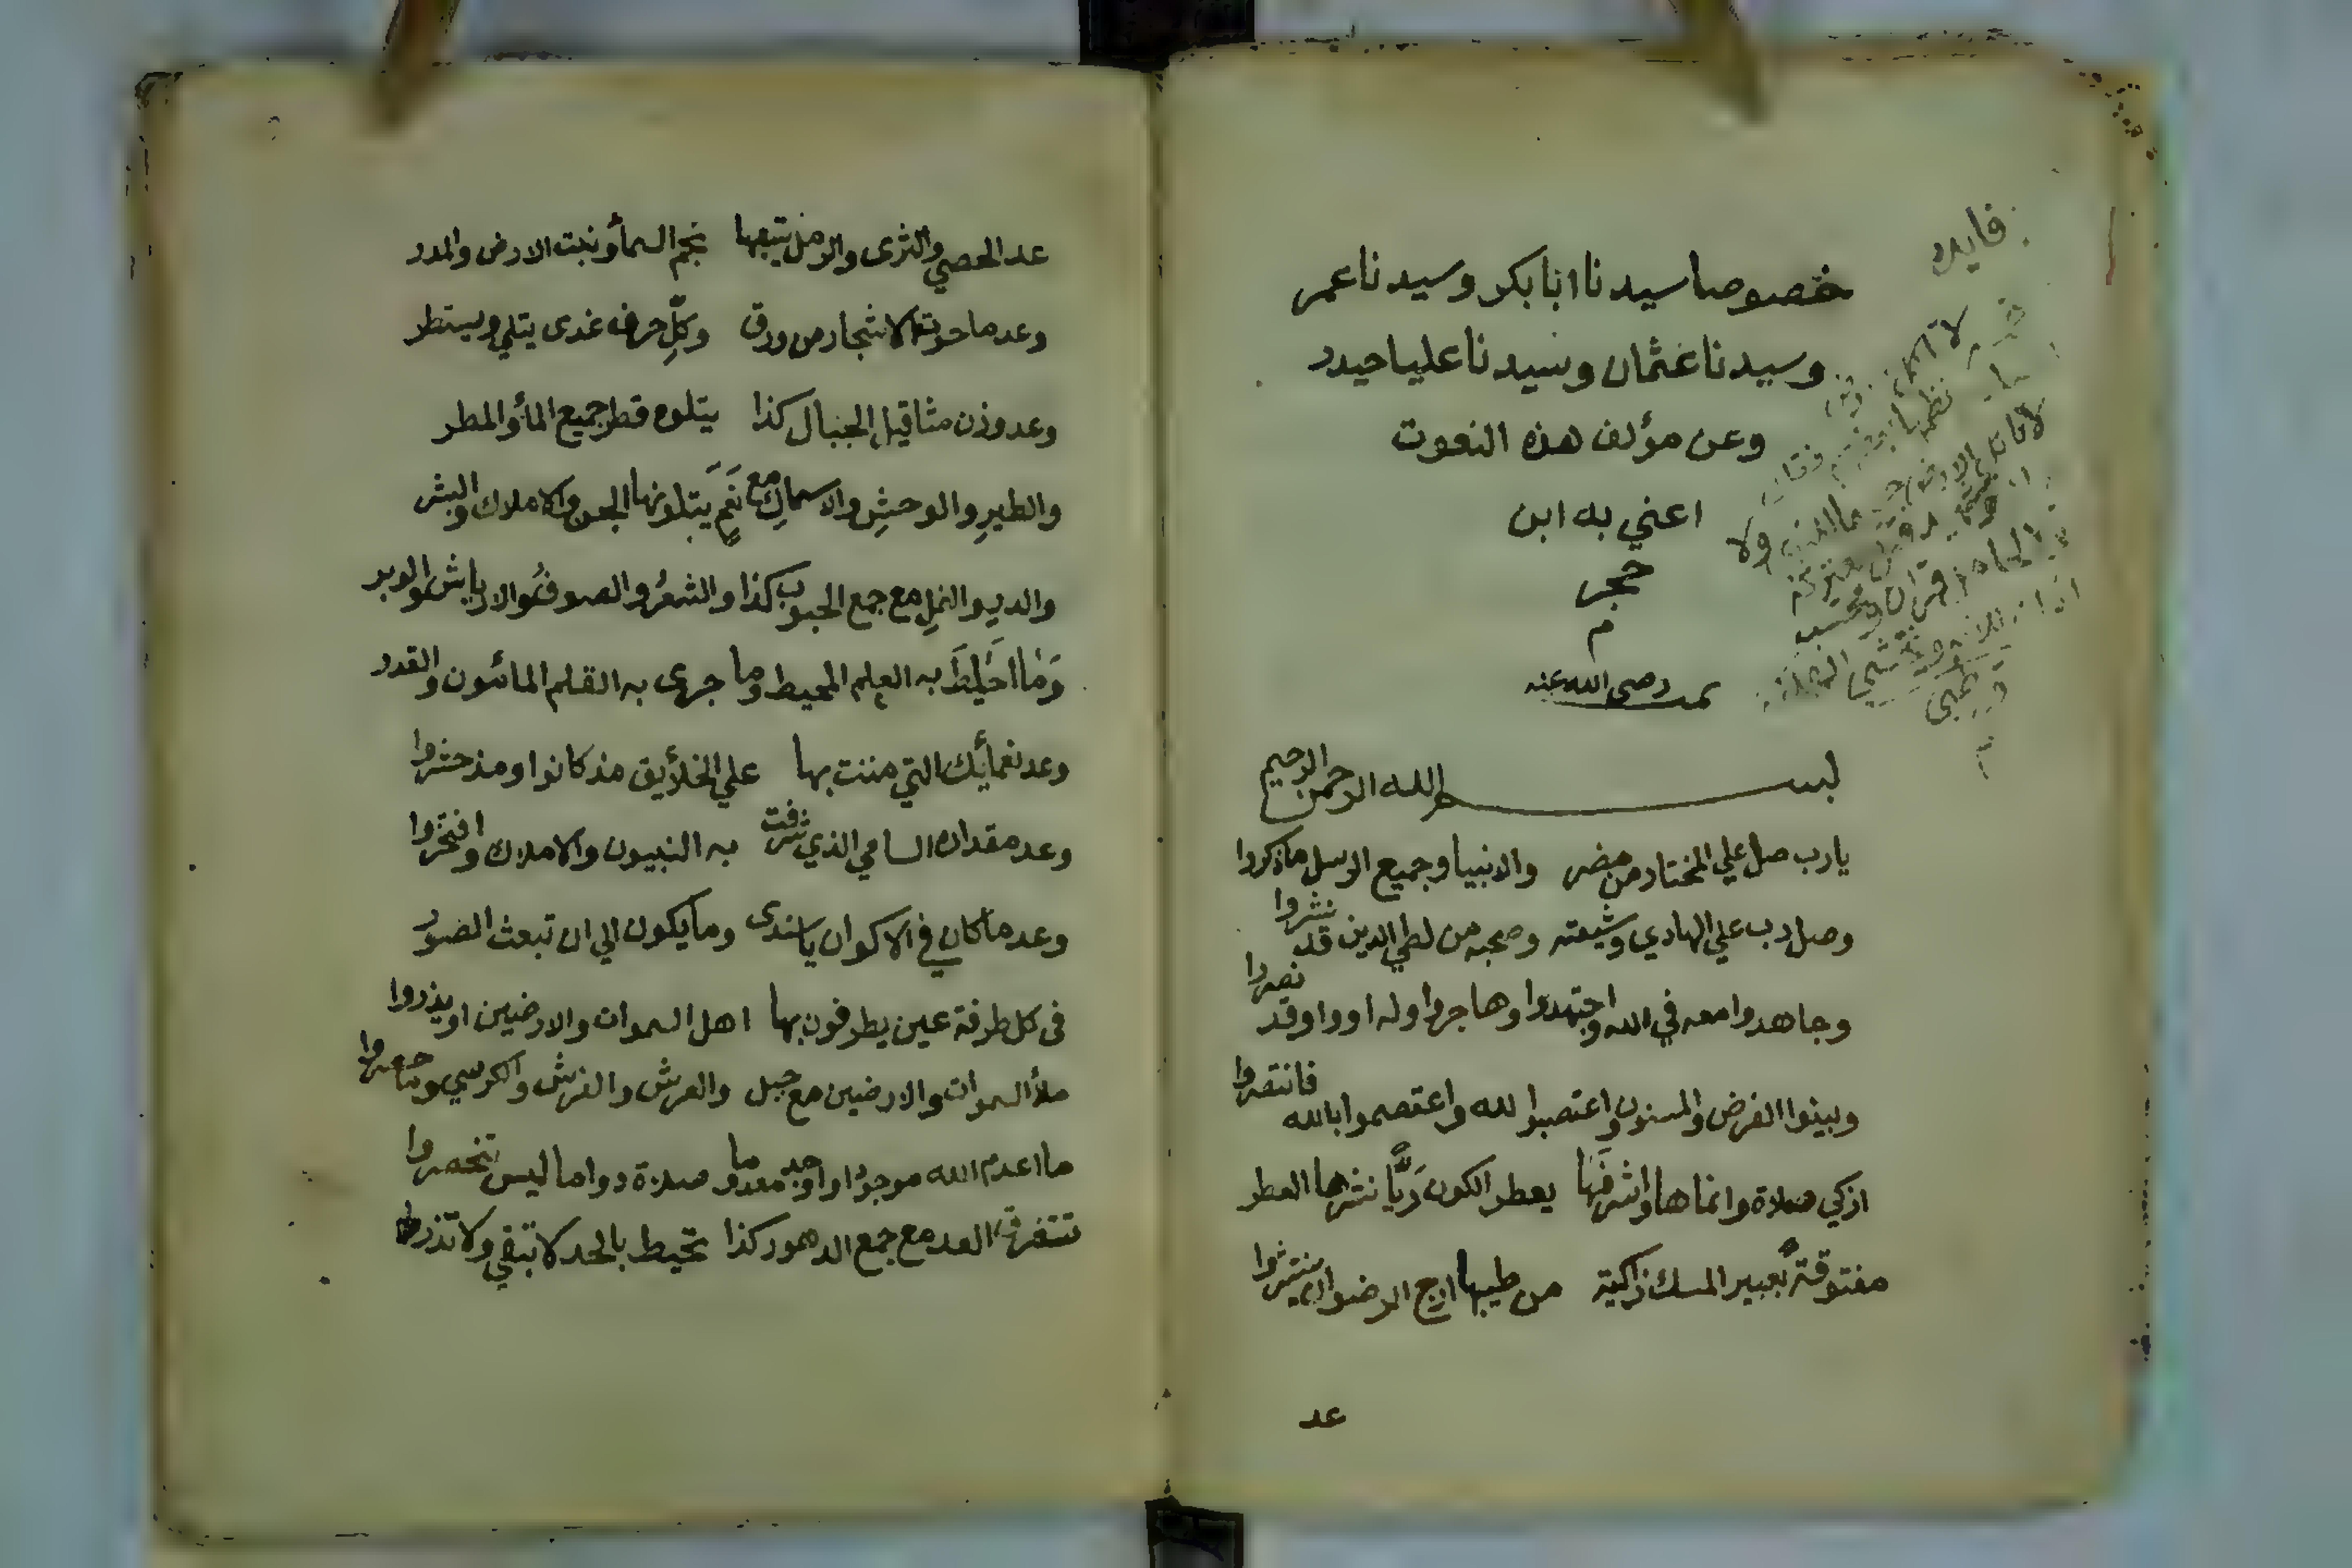 خصوصا سيدنا ابا بكر وسيدنا عمر
وسيدنا عثمان وسيدنا عليا حيدر
وعن مؤلف هذه النعوت
اعني به ابن
حجر
م
تمت رضي الله عنه
فايده
بسم الله الرحمن الرحيم
يا رب صل علي المختار من مضر والانبيا وجميع الرسل ما ذكروا
وصل رب علي الهادي وشيعته وصحبه من لطي الدين قد نشروا
وجاهدوا معه في الله واجتهدوا وهاجروا وله اووا وقد نصروا
وبينوا الفرض والمسنون واعتصبوا لله واعتصموا بالله فانتصروا
ازكي صلاة وانماها واشرفها يعطر الكون ريّا نشرها العطر
مفتوقة بعبير المسك زاكية من طيبها ارج الرضوان ينتشروا
عد
عد الحصي والثرى والرمل يتبعها نجم السمأ ونبت الارض والمدر
وعد ما حوت الاشجار من ورق وكل حرف غدى يتلي ويستطر
وعد وزن مثاقيل الجبال كذا يتلوه قطر جميع المأ والمطر
والطير والوحش والاسماك مع نعم يتلونها الجن والاملاك والبشر
والدر والنمل مع جمع الحبوب كذا والشعر والصوف والارياش والوبر
وما احليط به العلم المحيط وما جرى به القلم المائون والقدر
وعد نعمأيك التي مننت بها علي الخلأيق مذ كانوا ومذ حشروا
وعد مقداره السامي الذي شرفت به النبيون والاملاك وافتخروا
وعد ما كان في الاكوان يا سندى وما يكون الي ان تبعث الصور
فى كل طرفة عين يطرفون بها اهل السموات والارضين او يذروا
ملأ السموات والارضين مع جبل والعرش والفرش والكرسي وما حصروا
ما اعدم الله موجودا واوجد معدوما صلاة دواما ليس تنحصروا
تستغرق العد مع جمع الدهور كذا تحيط بالحد لا تبقي ولا تذر